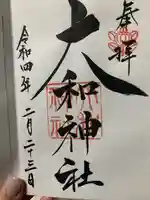 奉拝
大和神社
令和四年
二月二十三日